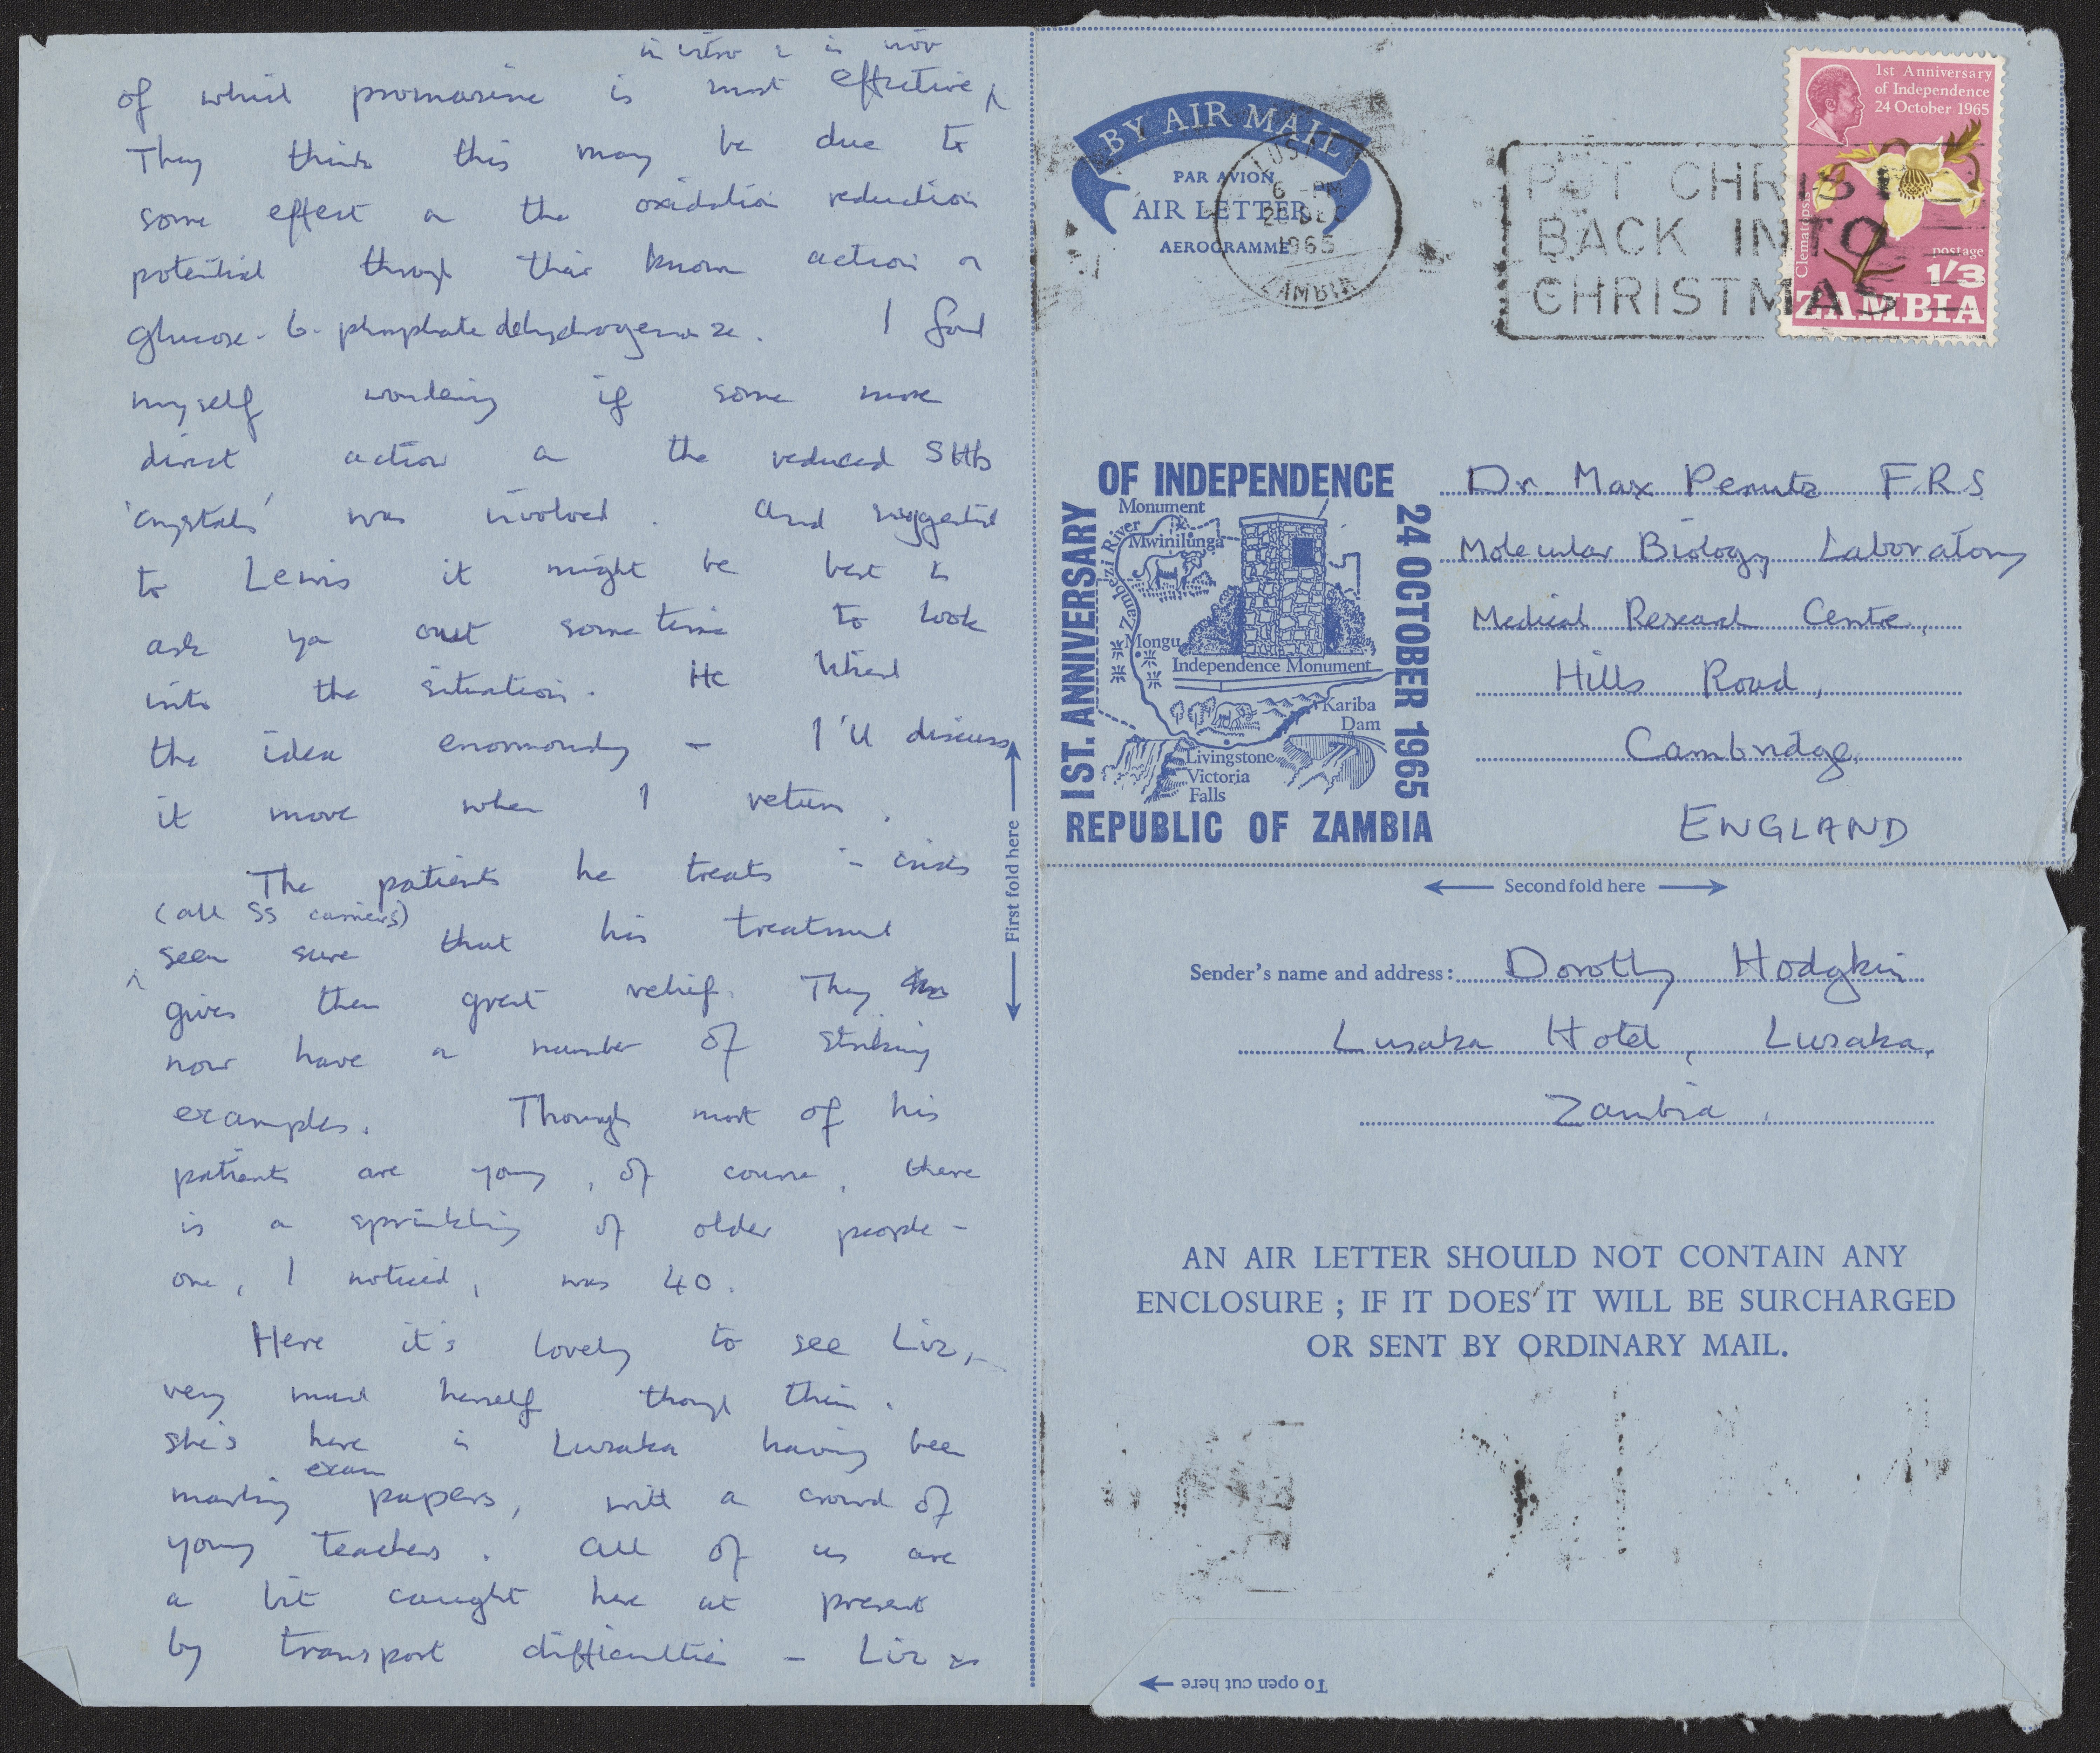 in vitro & in vivo
of which promazine is most effective
They think this may be due to
some effect on the oxidation reduction
potential through their known action on
glucose-6-phosphate dehydrogenase. I found
myself wondering if some more
direct action on the reduced SHb
'crystals' was involved. And suggested
to Lewis it might be best to
ask you some time to look
into the situation. He liked
the idea enormously – I'll discuss
it more when I return.
The patients he treats in crisis
(all SS carriers)
seem sure that his treatment
gives them great relief. They
now have a number of striking
examples. Though most of his
patients are young, of course, there
is a sprinkling of older people –
one, I noticed, was 40.
Here it's lovely to see Liz,
very much herself though thin.
She's here in Lusaka having been
exam
marking papers, with a crowd of
young teachers. All of us are
a bit caught here at present
by transport difficulties – Liz
First fold here
BY AIR MAIL
PAR AVION
AIR LETTER
AEROGRAMME
LUSAKA
6 - PM
DEC
1965
ZAMBIA
PUT CHRIST
BACK INTO
CHRISTMAS
1st Anniversary
of Independence
24 October 1965
Clematopsis
postage
1/3
ZAMBIA
1ST. ANNIVERSARY
OF INDEPENDENCE
24 OCTOBER 1965
Monument
Mwinilunga
Zambezi River
Mongu
Independence Monument
Kariba
Dam
Livingstone
Victoria
Falls
REPUBLIC OF ZAMBIA
Dr. Max Perutz F.R.S
Molecular Biology Laboratory
Medical Research Centre,
Hills Road,
Cambridge,
ENGLAND
Second fold here
Sender's name and address: Dorothy Hodgkin
Lusaka Hotel, Lusaka,
Zambia.
AN AIR LETTER SHOULD NOT CONTAIN ANY
ENCLOSURE ; IF IT DOES IT WILL BE SURCHARGED
OR SENT BY ORDINARY MAIL.
To open cut here